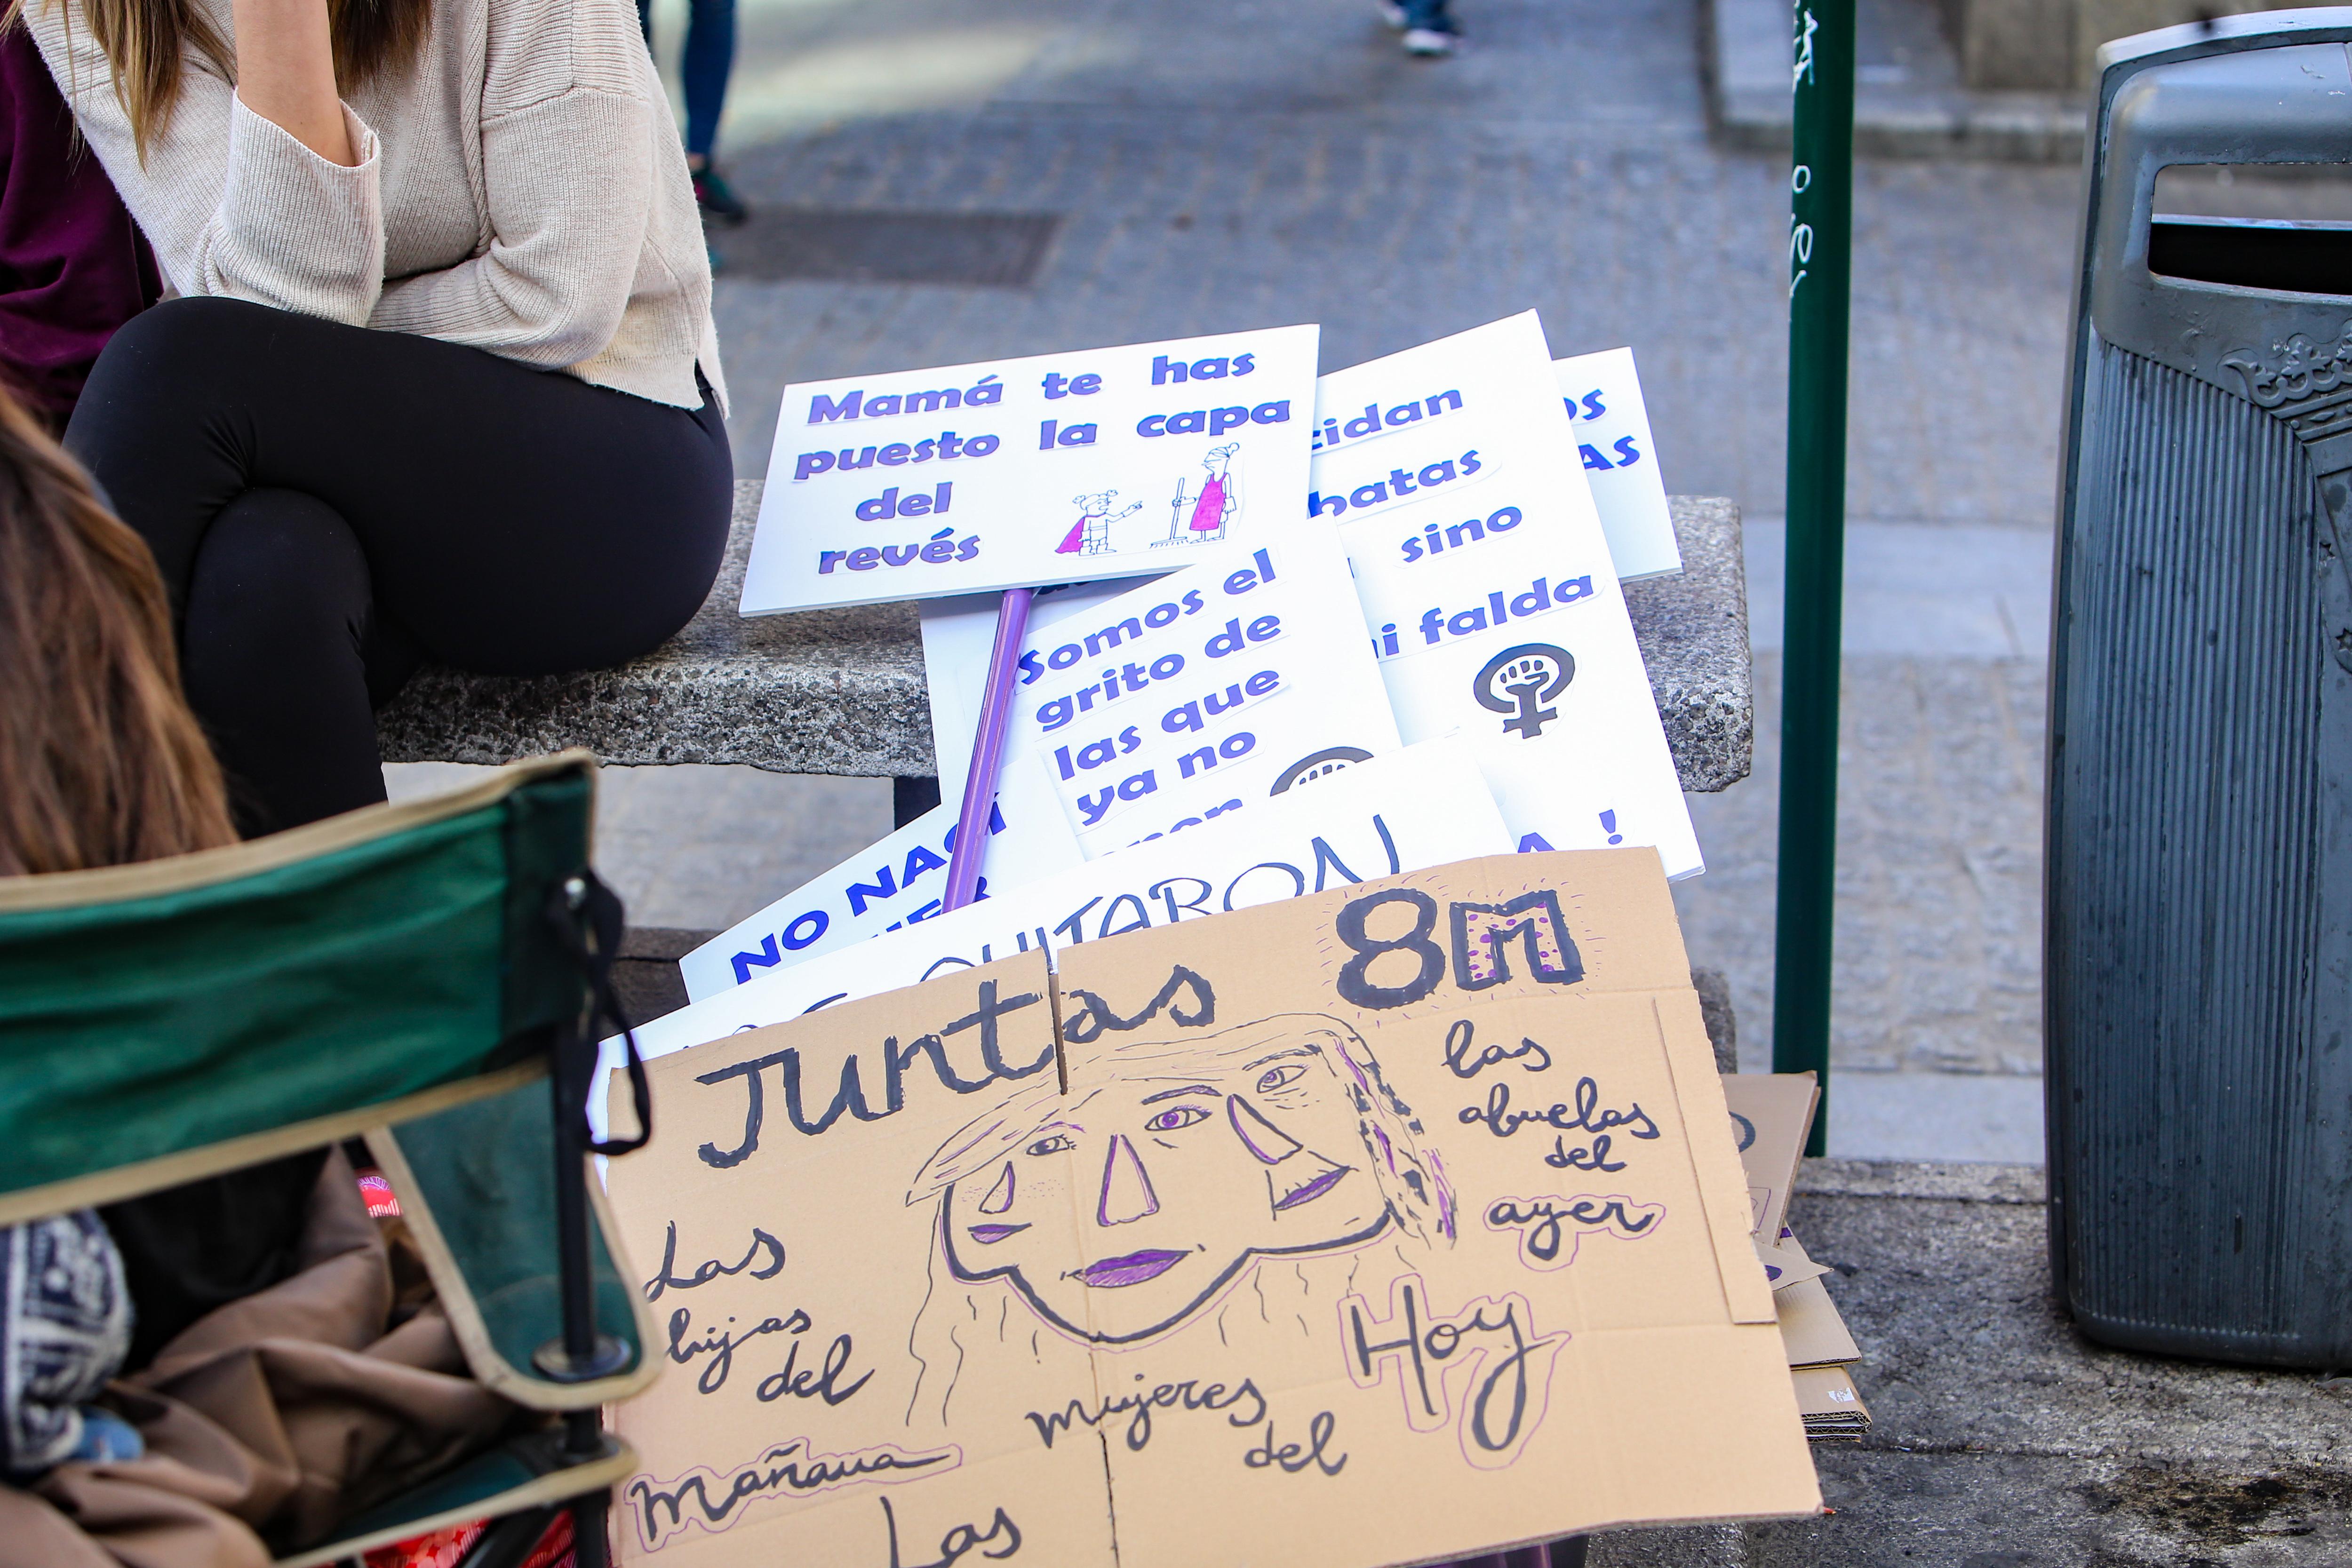 Mamá te has
puesto la capa
del
revés
batas
sino
falda
AS
Somos el
grito de
las que
ya no
!
NO
QUITARON
Juntas
8M
las
abuelas
del
ayer
Las
hijas
del
Mañana
mujeres
del
Hoy
Las